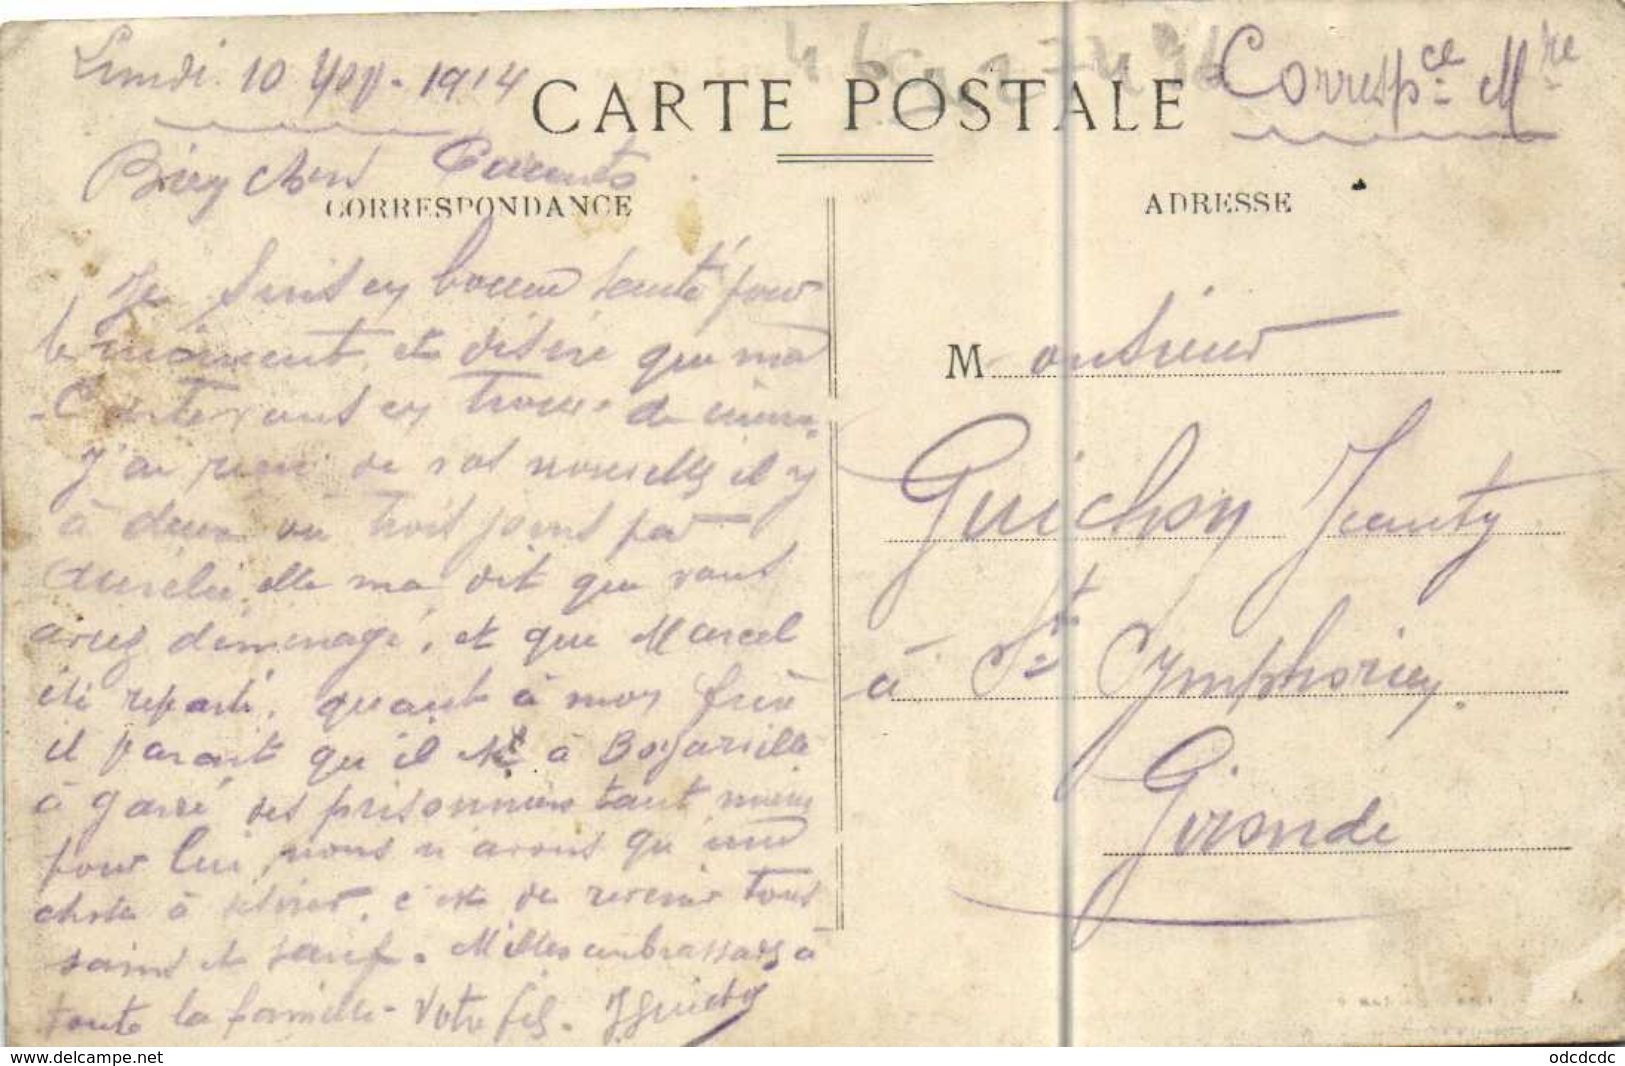 Lundi 10 1914
CARTE POSTALE
Corresp.ce Mre
Bien chers Parents
CORRESPONDANCE
ADRESSE
Je suis en bonne santé pour
le moment, et désire que ma
Carte vous en trouve de même,
j'ai reçu de vos nouvelles il y
à deux ou trois jours par
Aurélie, elle ma dit que vous
aviez déménagé, et que Marcel
été reparti, quant à mon frère
il parait qu'il est à Boyarville
à garré des prisonniers tant mieux
pour lui, nous n'avons qu'une
chose à désirer, c'est de revenir tous
sains et sauf. Milles embrassades à
toute la famille - Votre fils. J Guichon
Monsieur
Guichon Jeanty
à St Symphorien.
Gironde
odcdcdc